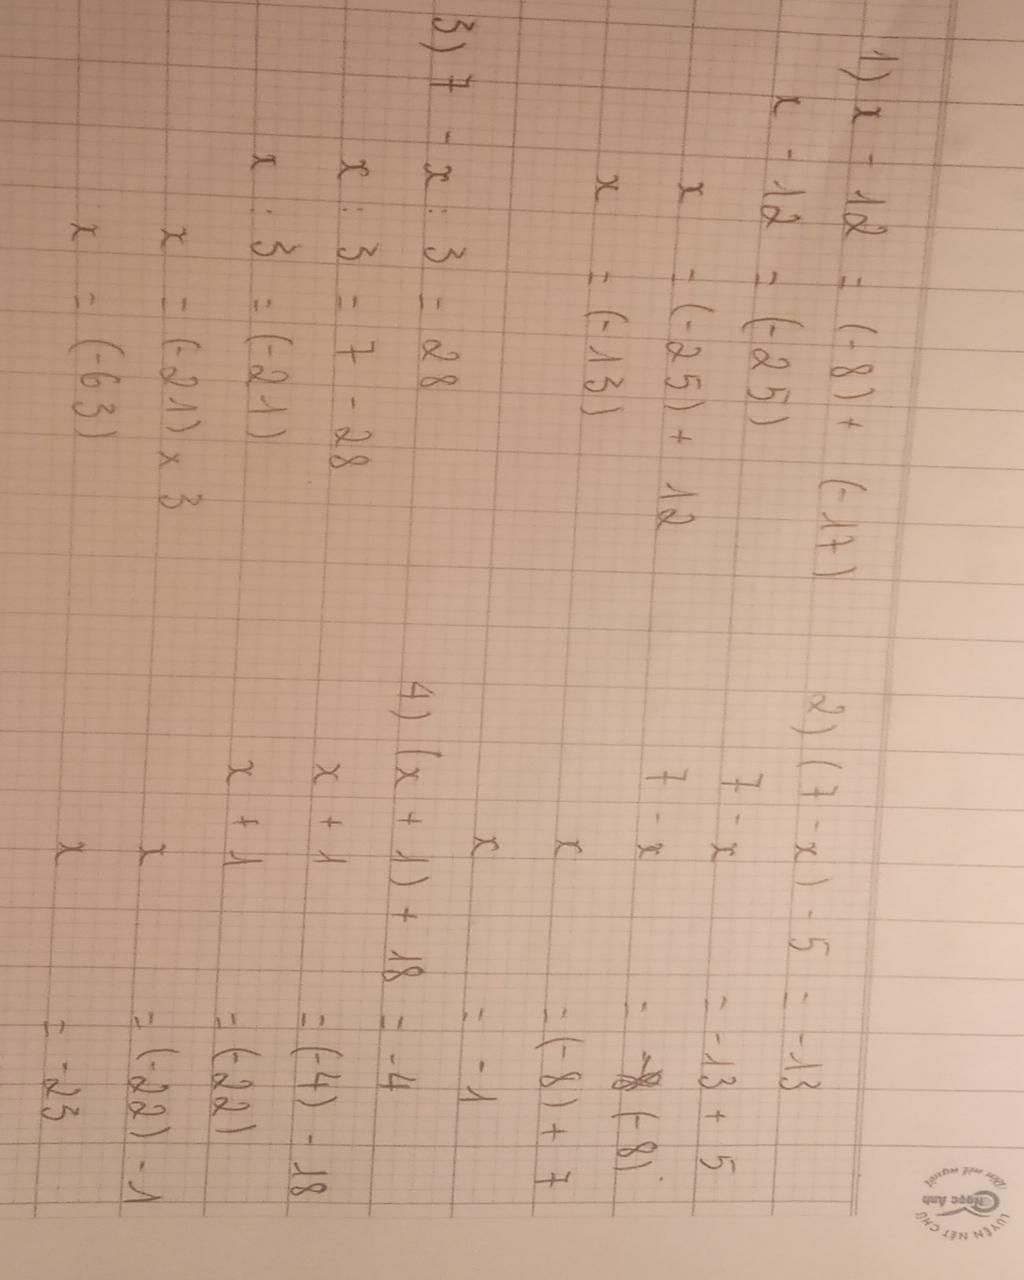 1) x - 12 = (-8) + (-17)
x - 12 = (-25)
x = (-25) + 12
x = (-13)
2) (7 - x) - 5 = -13
7 - x = -13 + 5
7 - x = (-8)
x = (-8) + 7
x = -1
3) 7 - x : 3 = 28
x : 3 = 7 - 28
x : 3 = (-21)
x = (-21) x 3
x = (-63)
4) (x + 1) + 18 = -4
x + 1 = (-4) - 18
x + 1 = (-22)
x = (-22) - 1
x = -23
LUYỆN NÉT CHỮ
Ngọc Ánh
Rèn nết người